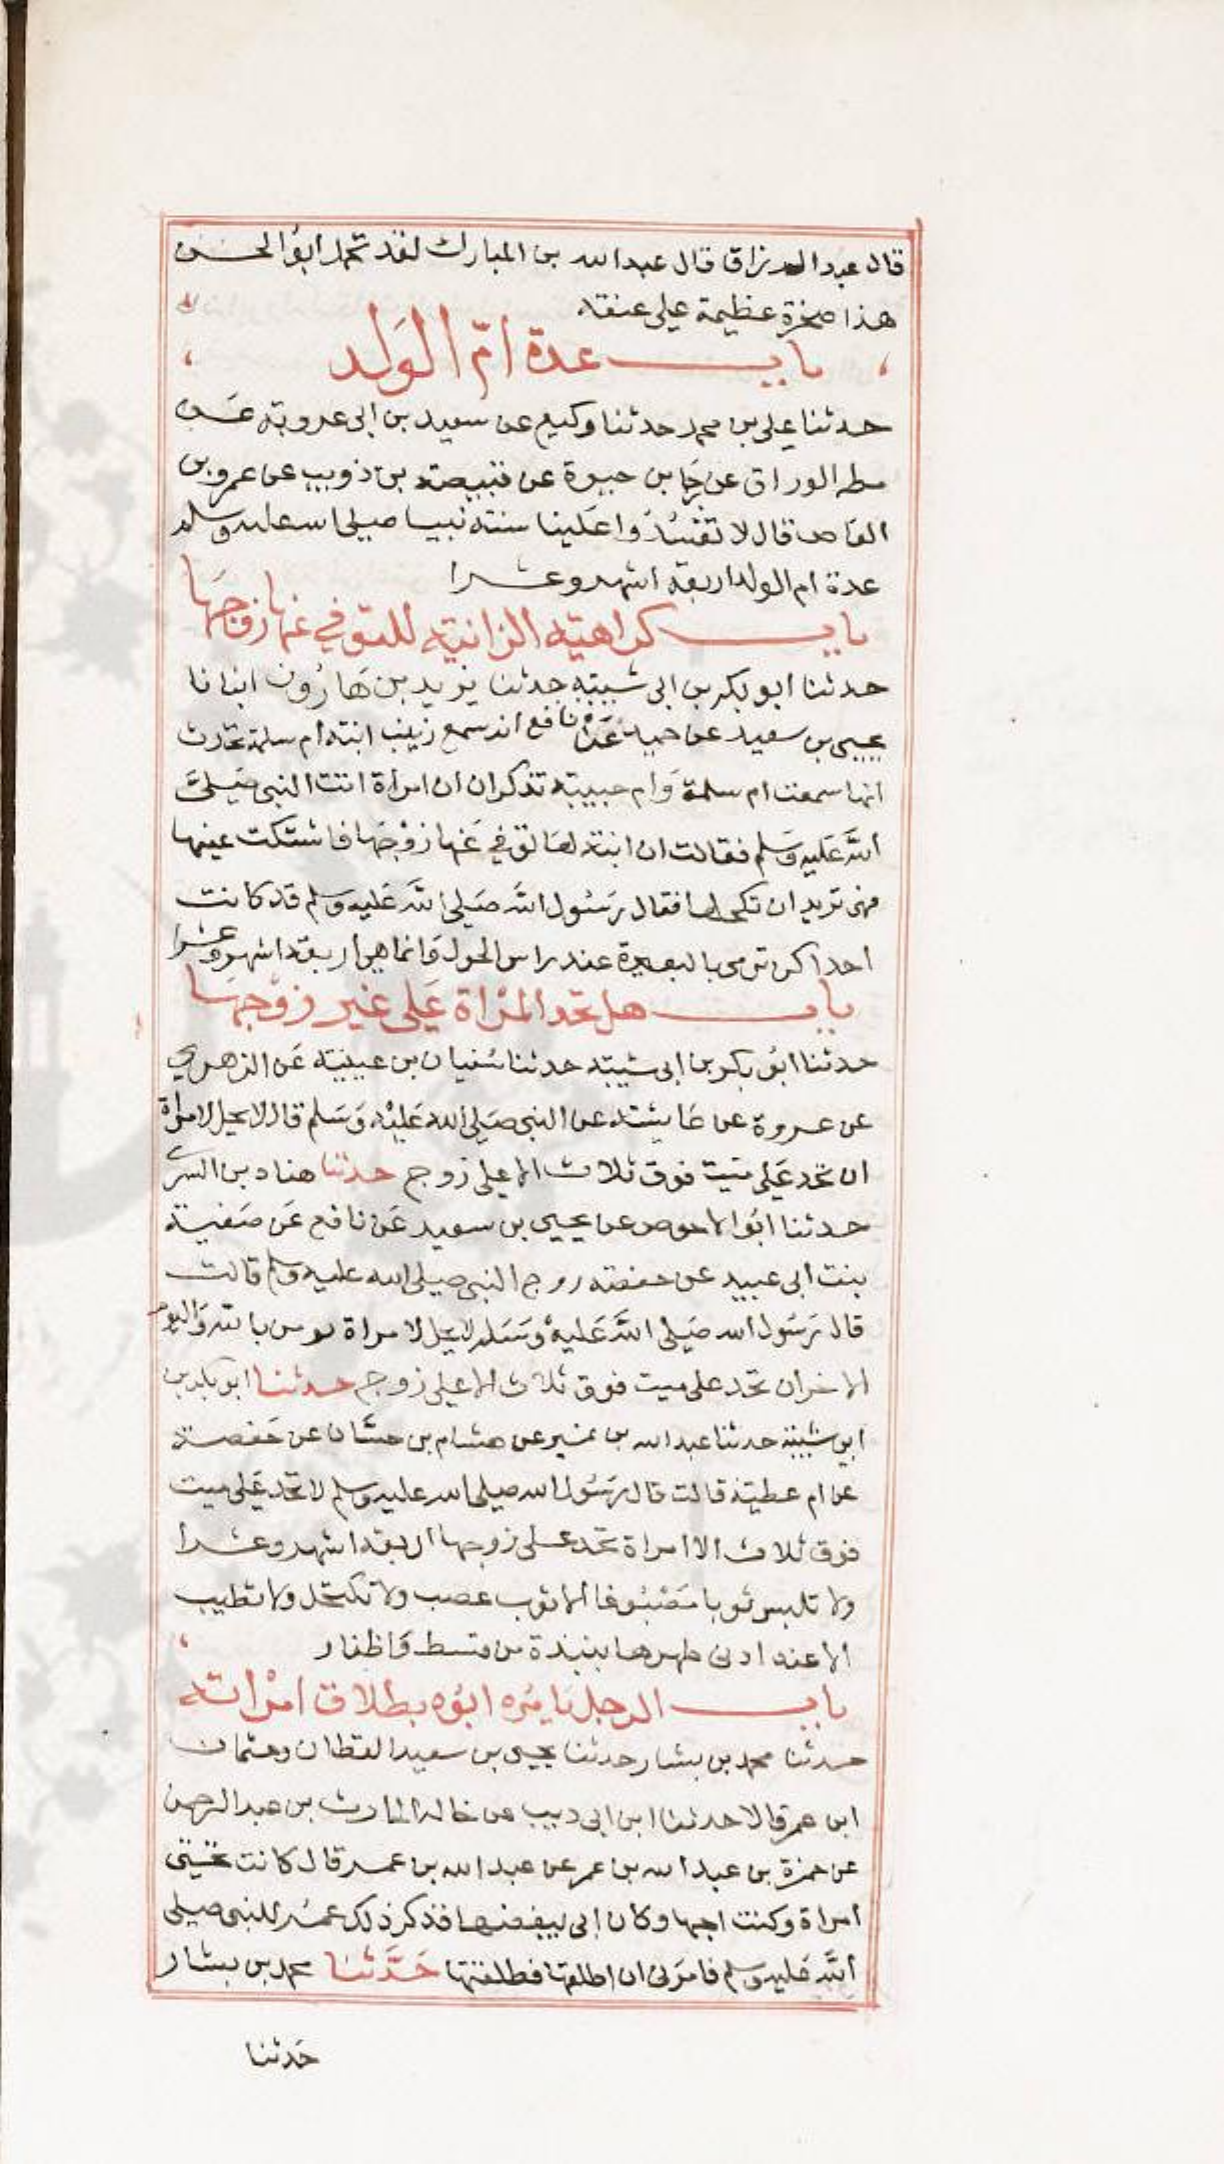 قال عبد الرزاق قال عبد الله بن المبارك لقد تحمل ابو الحسن
هذا صخرة عظيمة على عنقه
باب عدة امّ الولد
حدثنا علي بن محمد حدثنا وكيع عن سعيد بن ابي عروبة عن
مطر الوراق عن رجا بن حيوة عن قبيصة بن ذويب عن عمرو بن
العاص قال لا تفسدوا علينا سنة نبينا صلى الله عليه وسلم
عدة ام الولد اربعة اشهر وعشرا
باب كراهية الزانية للمتوفي عنها زوجها
حدثنا ابو بكر بن ابي شيبة حدثنا يزيد بن هارون انبانا
يحيى بن سعيد عن حميد عن نافع انه سمع زينب ابنة ام سلمة تحدث
انها سمعت ام سلمة وام حبيبة تذكران ان امراة اتت النبي صلى
الله عليه وسلم فقالت ان ابنة لها توفي عنها زوجها فاشتكت عينها
فهي تريد ان تكحلها فقال رسول الله صلى الله عليه وسلم قد كانت
احداكن ترمي بالبعرة عند راس الحول وانما هي اربعة اشهر وعشرا
باب هل تحد المراة على غير زوجها
حدثنا ابو بكر بن ابي شيبة حدثنا سفيان بن عيينة عن الزهري
عن عروة عن عايشة عن النبي صلى الله عليه وسلم قال لا يحل لامراة
ان تحد على ميت فوق ثلاث الا على زوج حدثنا هناد بن السري
حدثنا ابو الاحوص عن يحيى بن سعيد عن نافع عن صفية
بنت ابي عبيد عن حفصة زوج النبي صلى الله عليه وسلم قالت
قال رسول الله صلى الله عليه وسلم لا يحل لامراة تومن بالله واليوم
الاخر ان تحد على ميت فوق ثلاث الا على زوج حدثنا ابو بكر بن
ابي شيبة حدثنا عبد الله بن نمير عن هشام بن حسان عن حفصة
عن ام عطية قالت قال رسول الله صلى الله عليه وسلم لا تحد على ميت
فوق ثلاث الا امراة تحد على زوجها اربعة اشهر وعشرا
ولا تلبس ثوبا مصبوغا الا ثوب عصب ولا تكتحل ولا تطيب
الا عند ادنى طهرها بنبذة من قسط واظفار
باب الرجل يامره ابوه بطلاق امراته
حدثنا محمد بن بشار حدثنا يحيى بن سعيد القطان وعثمان
ابن عمر قالا حدثنا ابن ابي ذيب عن خاله الحارث بن عبد الرحمن
عن حمزة بن عبد الله بن عمر عن عبد الله بن عمر قال كانت تحتي
امراة وكنت احبها وكان ابي يبغضها فذكر ذلك عمر للنبي صلى
الله عليه وسلم فامرني ان اطلقها فطلقتها حدثنا محمد بن بشار
حدثنا